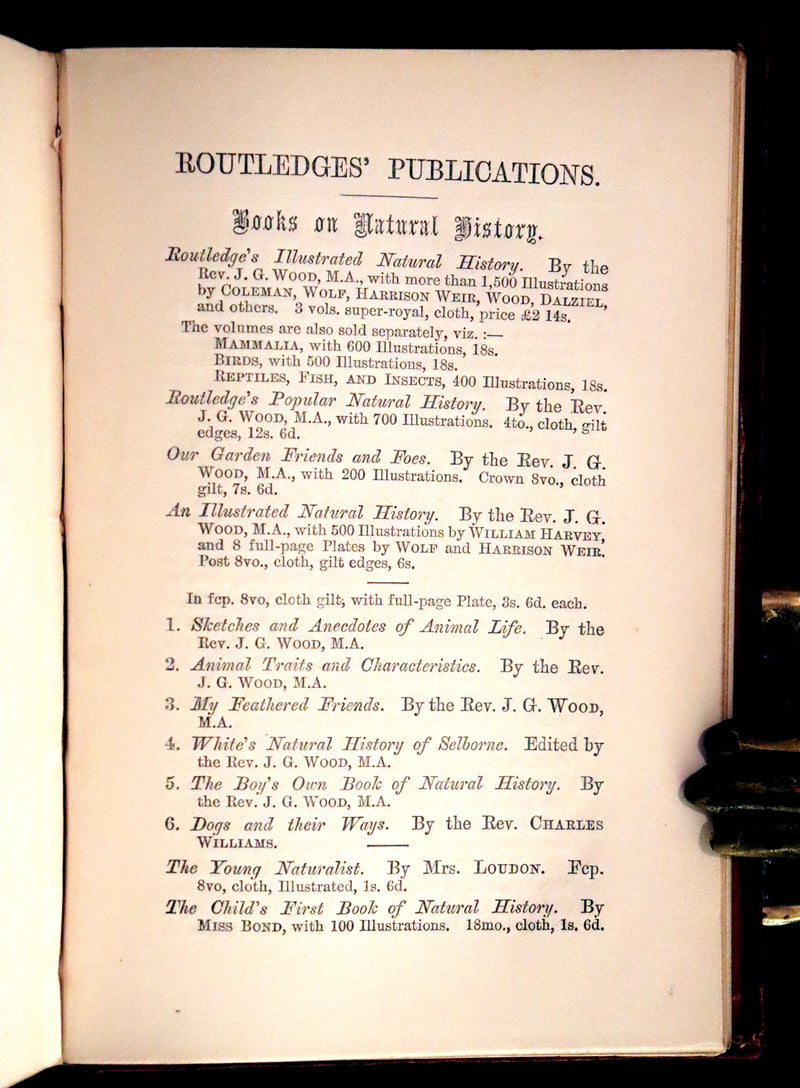 ROUTLEDGES' PUBLICATIONS.
Books on Natural History.
Routledge's Illustrated Natural History. By the
Rev. J. G. WOOD, M.A., with more than 1,500 Illustrations
by COLEMAN, WOLF, HARRISON WEIR, WOOD, DALZIEL,
and others. 3 vols. super-royal, cloth, price £2 14s.
The volumes are also sold separately, viz. :—
MAMMALIA, with 600 Illustrations, 18s.
BIRDS, with 500 Illustrations, 18s.
REPTILES, FISH, AND INSECTS, 400 Illustrations, 18s.
Routledge's Popular Natural History. By the Rev.
J. G. WOOD, M.A., with 700 Illustrations. 4to., cloth, gilt
edges, 12s. 6d.
Our Garden Friends and Foes. By the Rev. J. G.
WOOD, M.A., with 200 Illustrations. Crown 8vo., cloth
gilt, 7s. 6d.
An Illustrated Natural History. By the Rev. J. G.
WOOD, M.A., with 500 Illustrations by WILLIAM HARVEY,
and 8 full-page Plates by WOLF and HARRISON WEIR.
Post 8vo., cloth, gilt edges, 6s.
In fcp. 8vo, cloth gilt, with full-page Plate, 3s. 6d. each.
1. Sketches and Anecdotes of Animal Life. By the
Rev. J. G. WOOD, M.A.
2. Animal Traits and Characteristics. By the Rev.
J. G. WOOD, M.A.
3. My Feathered Friends. By the Rev. J. G. WOOD,
M.A.
4. White's Natural History of Selborne. Edited by
the Rev. J. G. WOOD, M.A.
5. The Boy's Own Book of Natural History. By
the Rev. J. G. WOOD, M.A.
6. Dogs and their Ways. By the Rev. CHARLES
WILLIAMS.
The Young Naturalist. By Mrs. LOUDON. Fcp.
8vo, cloth, Illustrated, 1s. 6d.
The Child's First Book of Natural History. By
MISS BOND, with 100 Illustrations. 18mo., cloth, 1s. 6d.